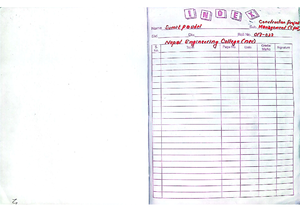 INDEX
Name Sumit paudel Sub. Construction project Management (cpm)
Std. Div. Roll No. 017-033
Nepal Engineering College (nec)
S. No. Title Page No. Date Signature